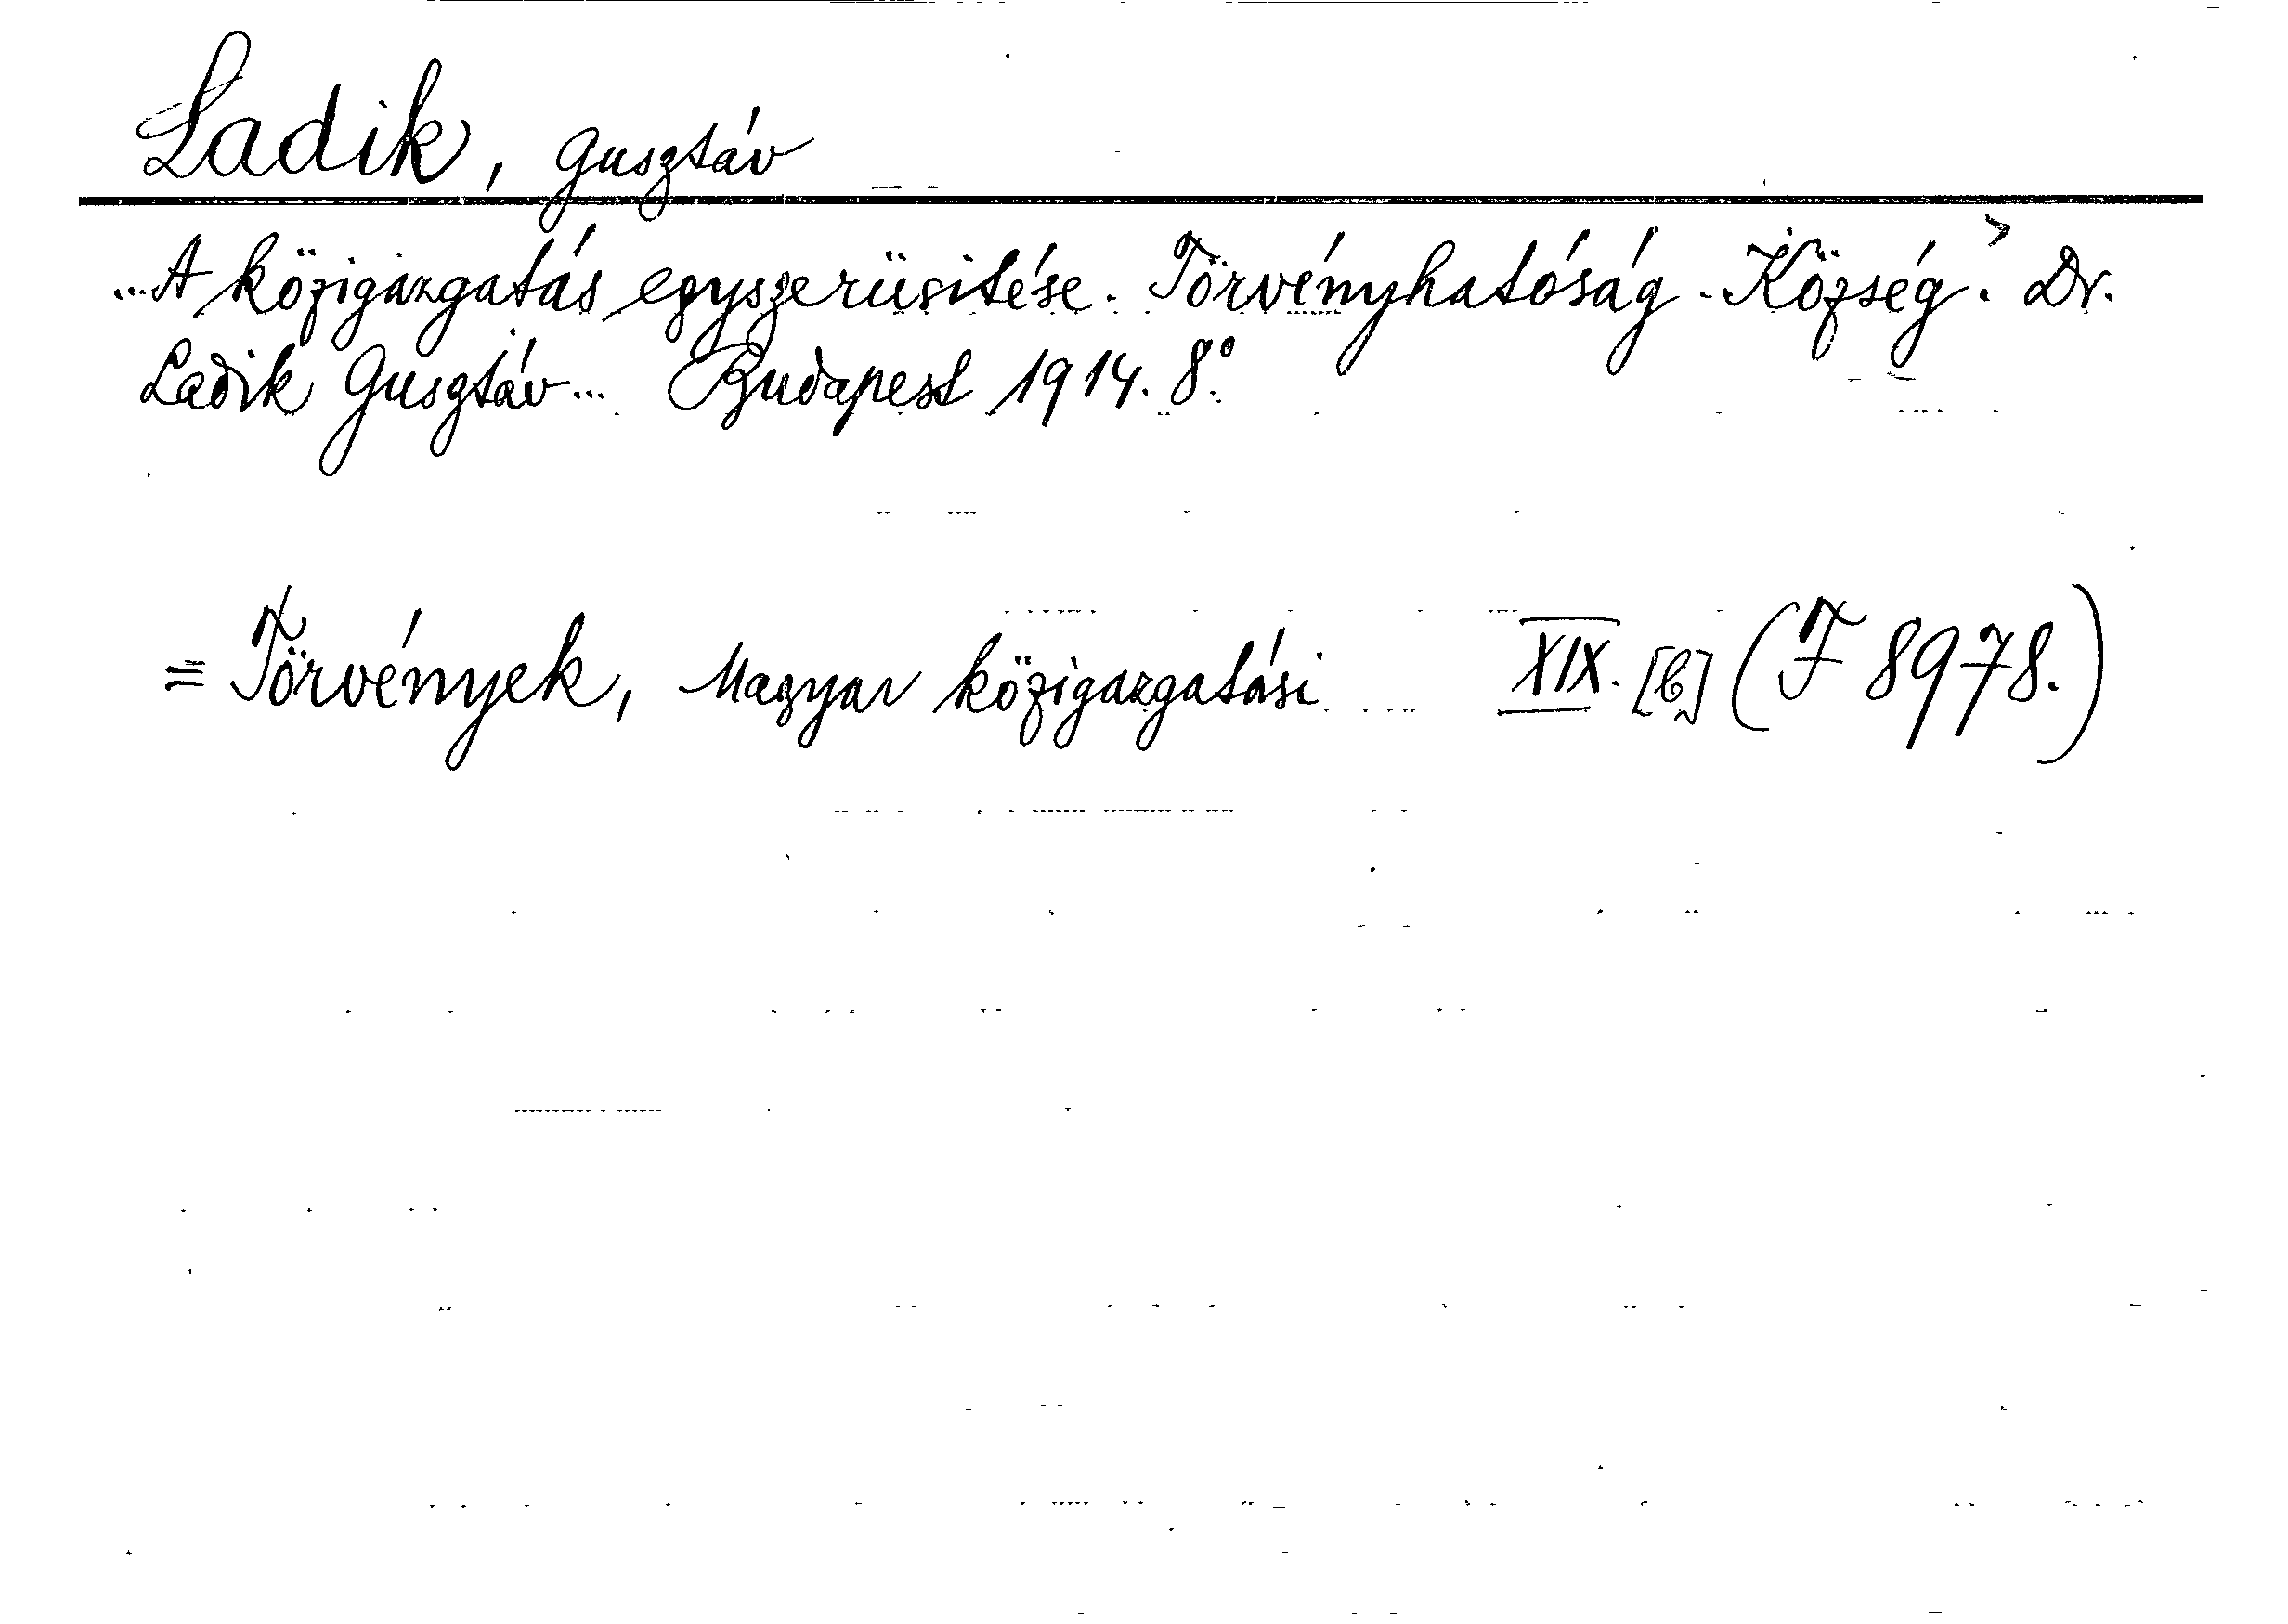 Ladik, Gusztáv
...A közigazgatás egyszerüsitése. Törvényhatóság - Község. Dr.
Ladik Gusztáv... Budapest 1914. 8°.
= Törvények, Magyar közigazgatási XIX. [b] (F 8978.)